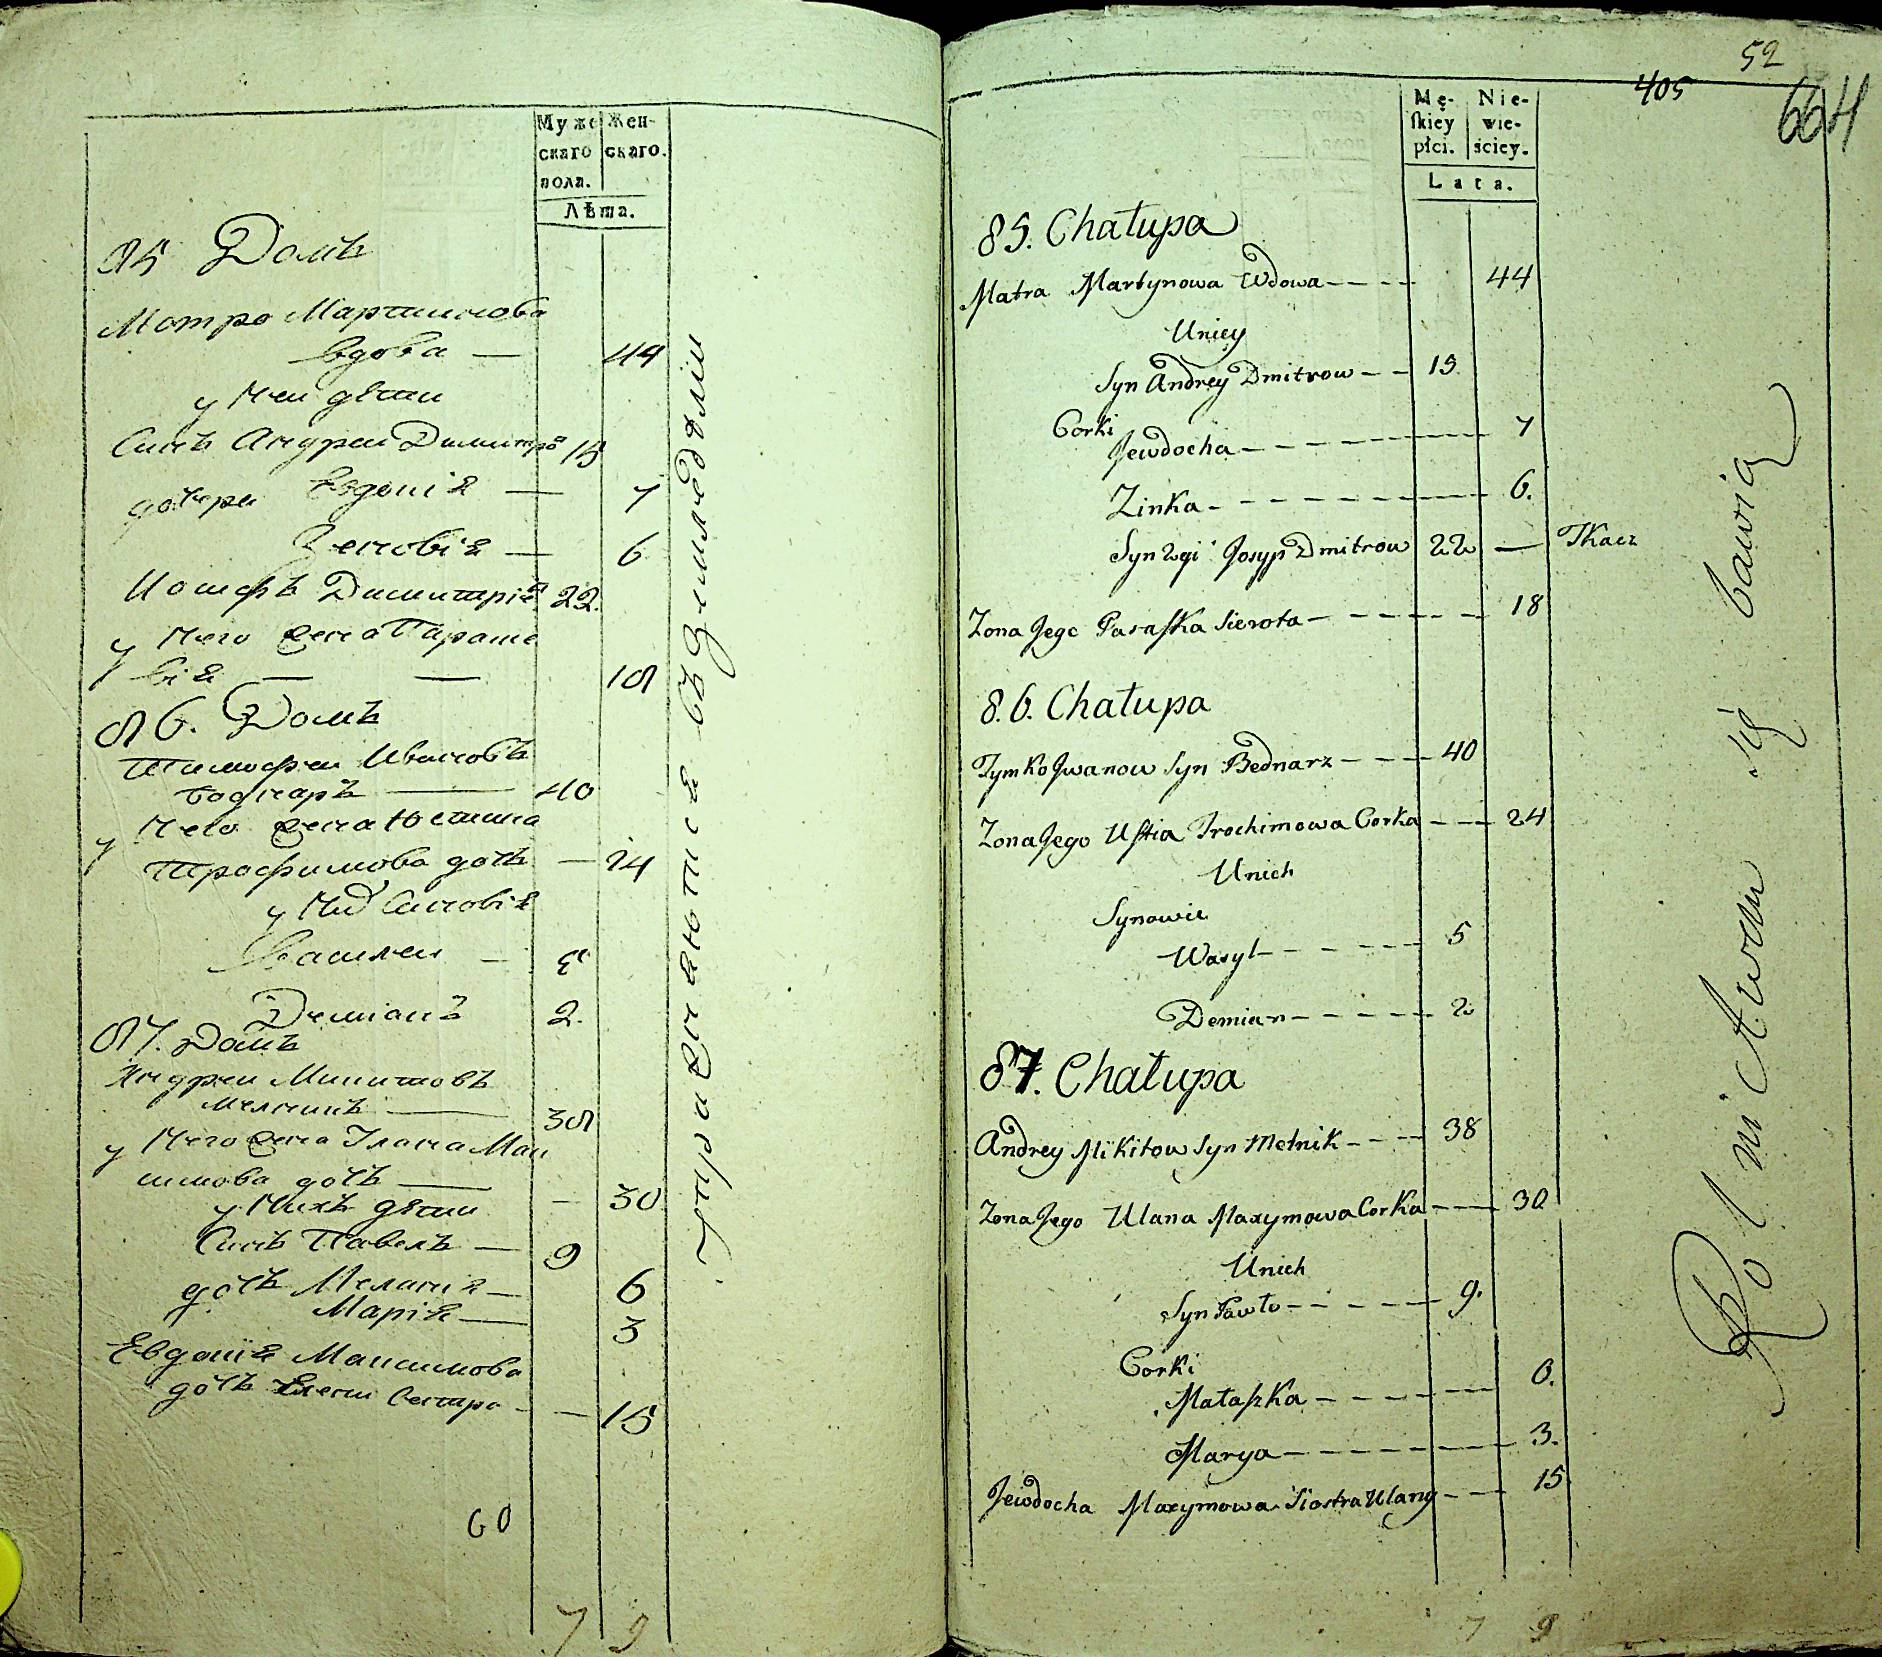 Муже
скаго
пола.
Жен-
скаго.
Лѣта.
85 Домъ
Мотро Мартинова
вдова — 44
у неи дѣти
Синъ Андреи Димитро 15
дочери Евдокія — 7
Зеновія — 6
Иосифъ Димитріе 22.
у него жена Параске
вія — — 18
86. Домъ
Тимофеи Ивановъ
боднаръ — 40
у него жена Юстина
Трофимова дочъ — 24
у них синовія
Василеи — 5
Демианъ 2.
87. Домъ
Андреи Микитовъ
мелникъ — 38
у него жена Улана Мак
симова дочъ —
у нихъ дѣти — 30
Синъ Павелъ — 9
дочъ Мелания — 6
Марія — 3
Евдокія Максимова
дочъ сестра — 15
60
7 9
упражняются въ земледѣліи
52
405
664
Mę-
skiey
płci.
Nie-
wie-
ściey.
Lata.
85. Chałupa
Matra Martynowa Wdowa - - - - 44
Uniey
Syn Andrey Dmitrow - - 15
Corki
Jewdocha - - - - - - - 7
Zinka - - - - - - - 6.
Syn 2gi Josyp Dmitrow 22 — Tkacz
Zona Jego Paraska Sierota - - - - - - 18
8.6. Chałupa
Tymko Jwanow Syn Bednarz - - - - 40
Zona Jego Ustia Trochimowa Corka - - - 24
Unich
Synowie
Wasyl - - - - - 5
Demian - - - - - 2
87. Chałupa
Andrey Mikitow Syn Melnik - - - - 38
Zona Jego Ulana Maxymowa Corka - - - 30
Unich
Syn Pawło - - - - - 9.
Corki
Małaszka - - - - - - 6.
Marya - - - - - - - 3.
Jewdocha Maxymowa Siostra Ulany - - - 15
7 9
Rolnictwem się bawią